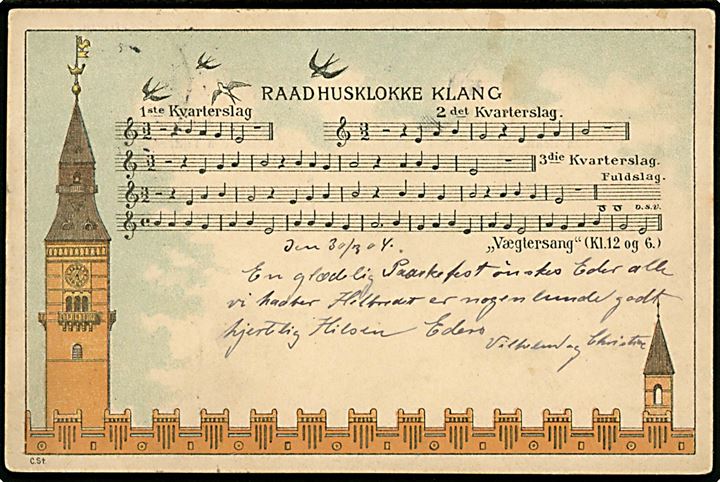 RAADHUSKLOKKE KLANG
1ste Kvarterslag
2det Kvarterslag.
3die Kvarterslag.
Fuldslag.
o.s.v.
„Vægtersang" (Kl. 12 og 6.)
Den 30/3 04.
En glædelig Paaskefest ønskes Eder alle
vi haaber Hilbredt er nogenlunde godt
hjertlig Hilsen Eders
Vilhelm og Christine
C.St.